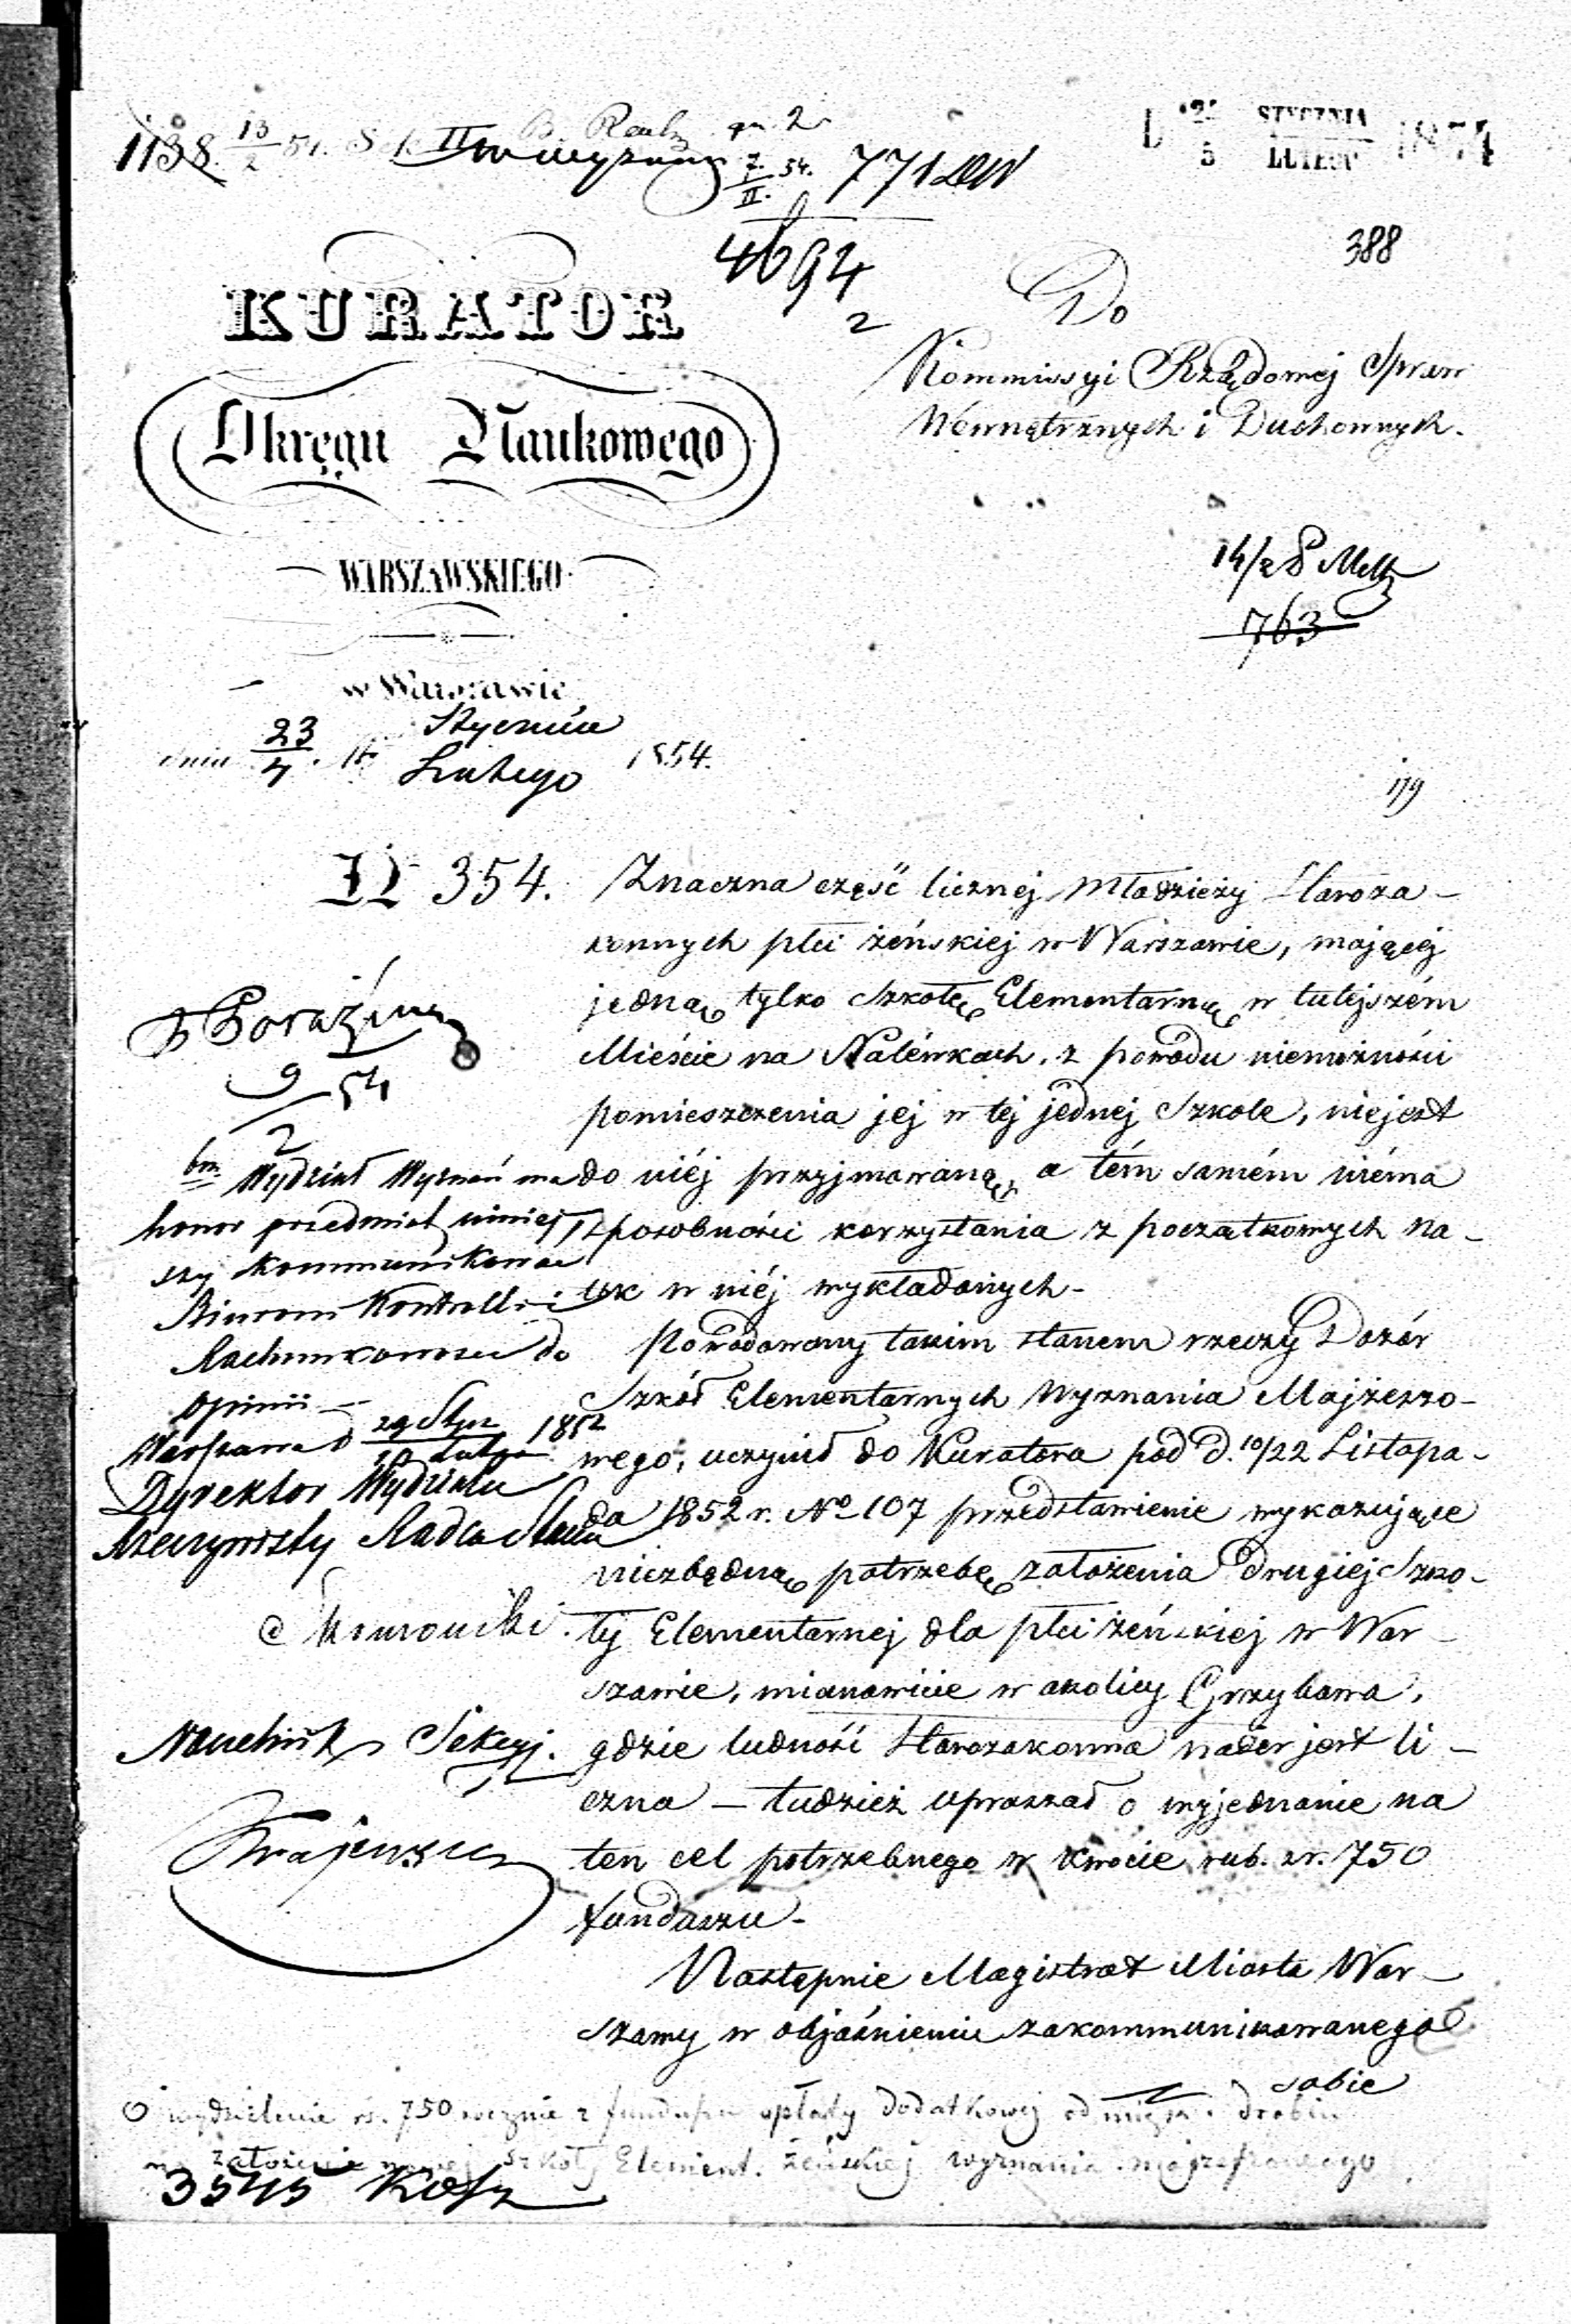 1138. 13/2 54.
7/II. 54. 771
4694
2
D. 24 STYCZNIA
5 LUTEGO 1854
388
KURATOR
Okręgu Naukowego
WARSZAWSKIEGO
w Warszawie
dnia 23/4 Stycznia
Lutego 1854.
Do
Kommissyi Rządowej Spraw
Wewnętrznych i Duchownych.
14/2
763
179
N 354.
Znaczna część licznej Młodzieży Staroza-
konnych płci żeńskiej w Warszawie, mającej
jedną tylko Szkołę Elementarną w tutejszém
Mieście na Nalewkach, z powodu niemożności
pomieszczenia jej w tej jednej Szkole, niejest
do niéj przyjmowaną, a tém samém niéma
sposobności korzystania z początkowych na-
uk w niéj wykładanych.
Powodowany takim stanem rzeczy Dozór
Szkół Elementarnych Wyznania Mojżeszo-
wego, uczynił do Kuratora pod d. 10/22 Listopa-
da 1852 r. No 107 przedstawienie wykazujące
niezbędną potrzebę założenia drugiej Szko-
ły Elementarnej dla płci żeńskiej w War-
szawie, mianowicie w okolicy Grzybowa,
gdzie ludność Starozakonna nader jest li-
czna — tudzież upraszał o wyjednanie na
ten cel potrzebnego w kwocie rub. sr. 750
funduszu.
Następnie Magistrat Miasta War-
szawy w objaśnieniu zakommunikowanego
sobie
9/2 54
Wydział Wyznań ma
honor przedmiot niniej
szy kommunikować
Biurowi Kontrolli i
Rachunkowości do
opinii —
Warszawa d 29 Stycz
10 Lutego
Dyrektor Wydziału
Rzeczywisty Radca Stanu
Naczelnik Sekcyi.
Krajewski
O wydzielenie rs. 750 rocznie z funduszu opłaty dodatkowej od mięsa i drobiu
na założenie nowej szkoły Element. żeńskiej wyznania mojżeszowego
3545